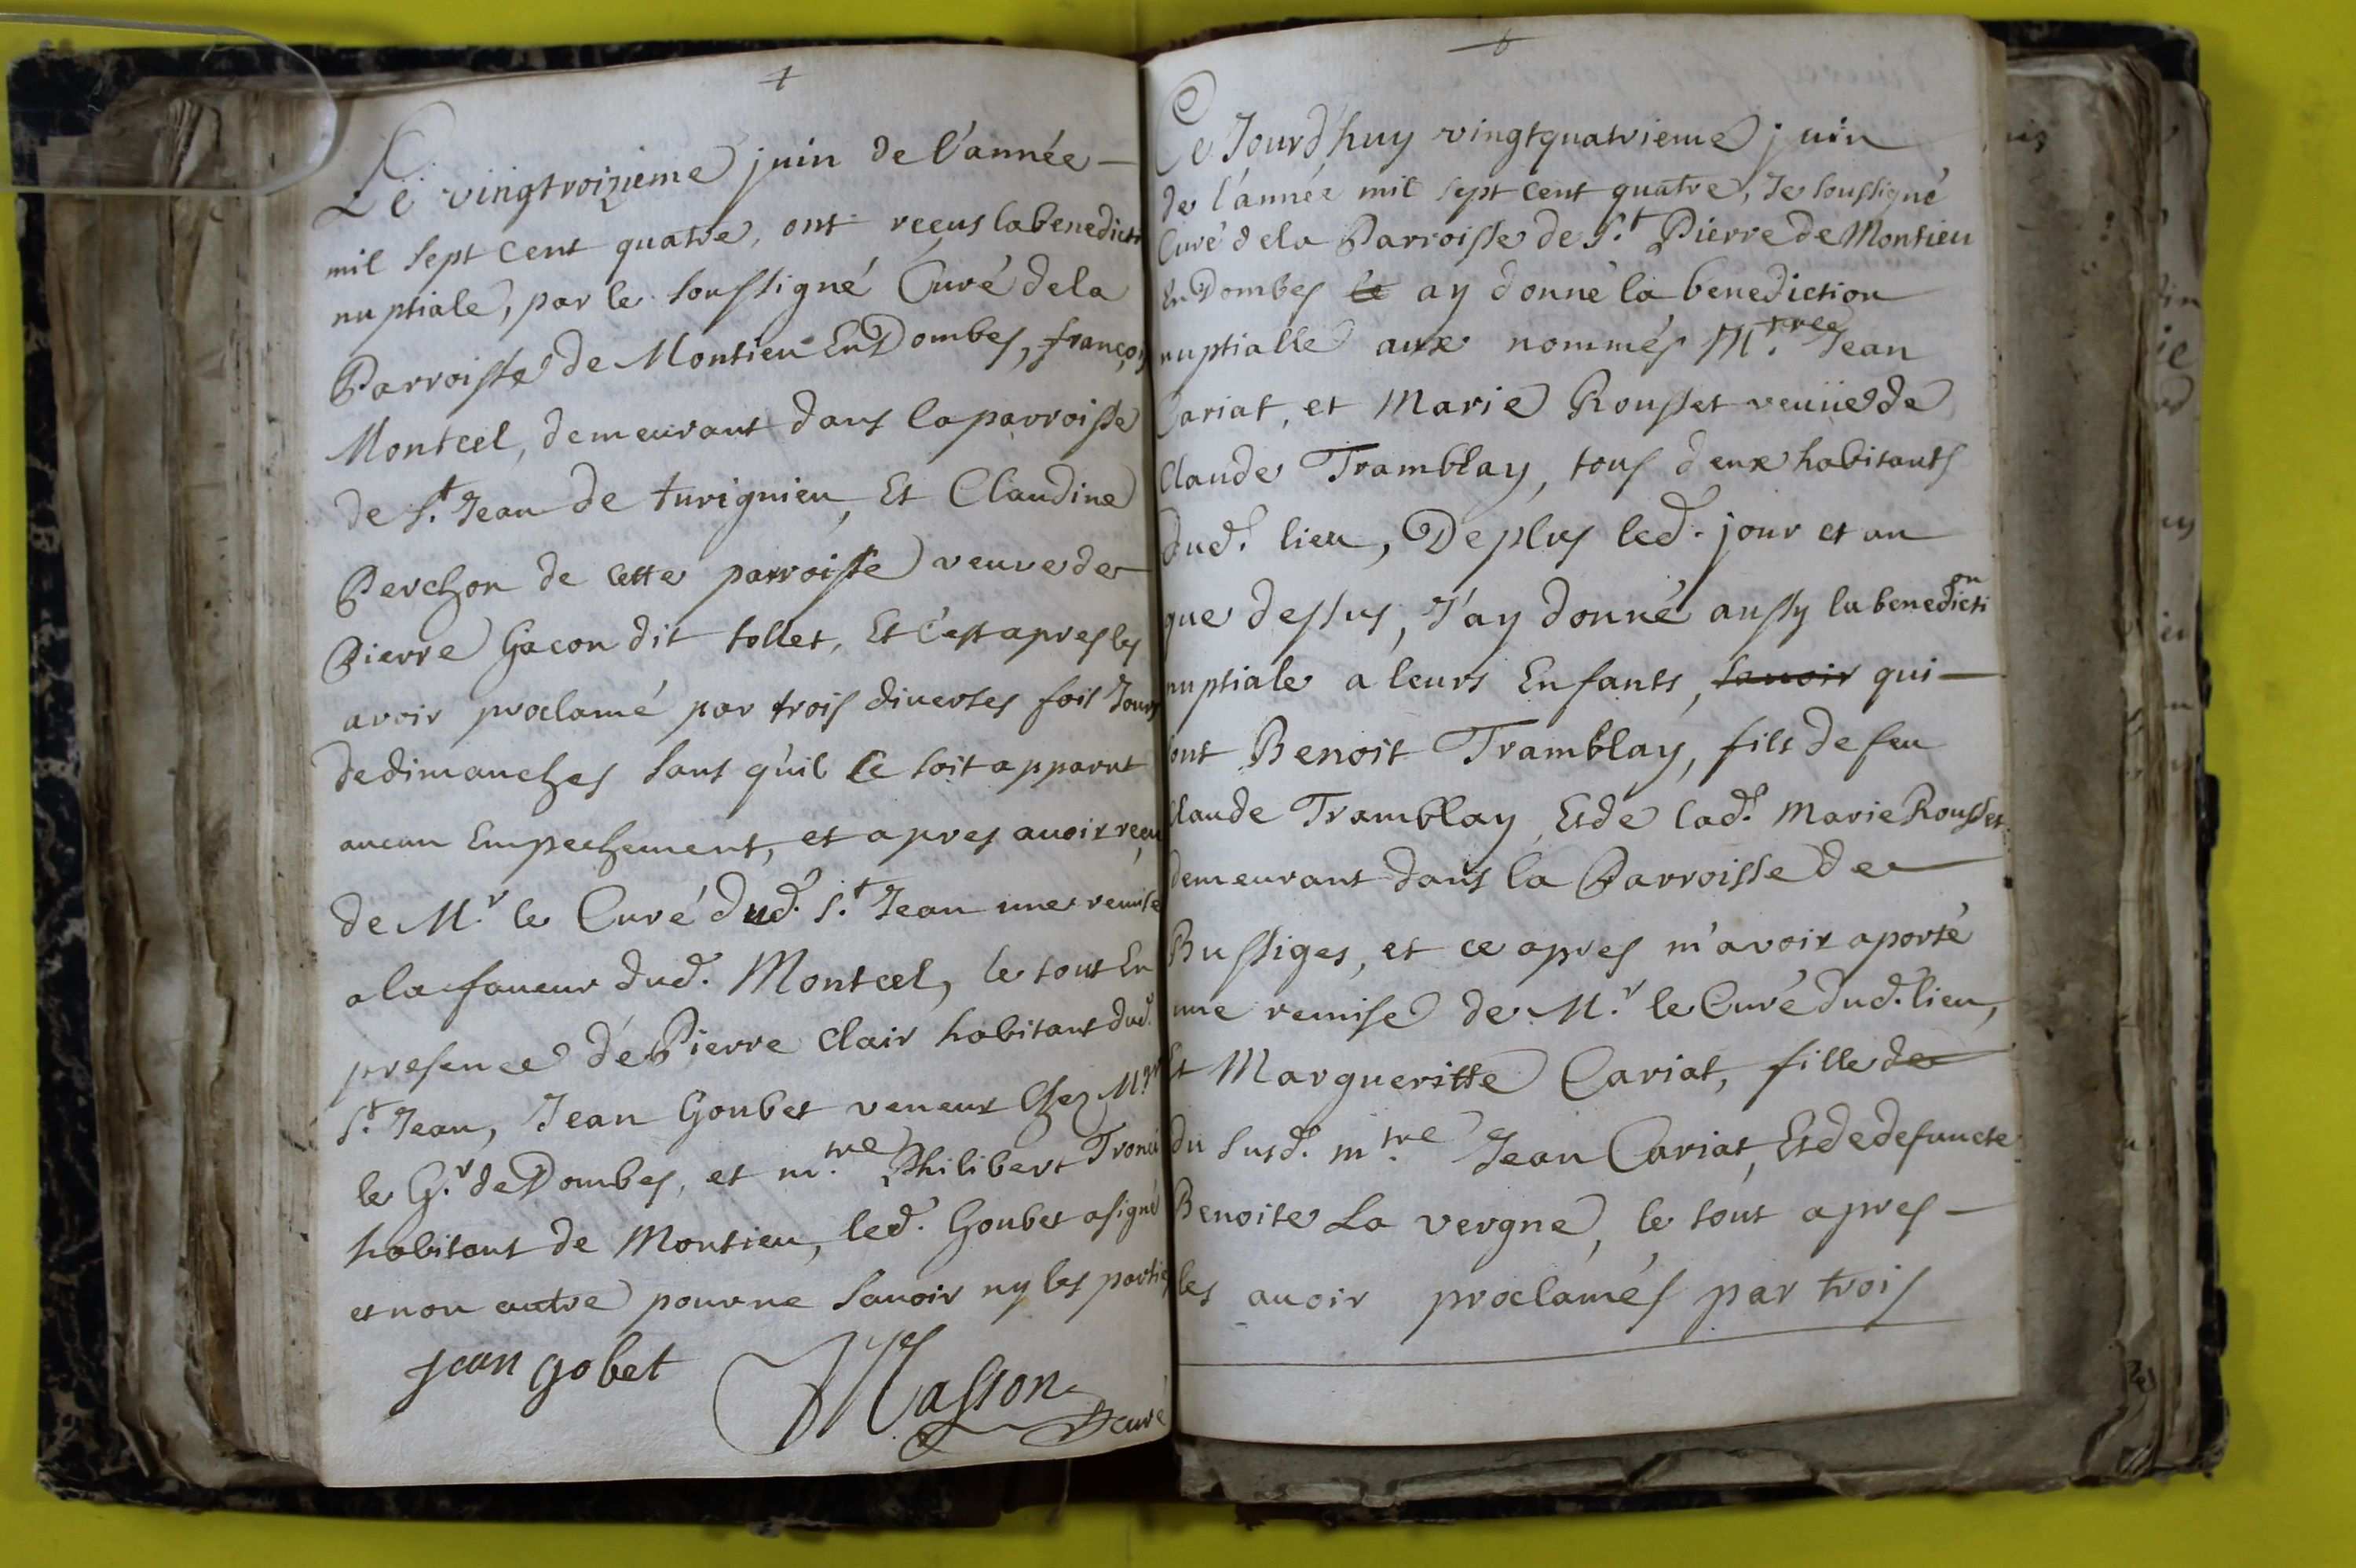 +
Le vingtroizieme juin de l'année
mil sept cent quatre, ont reçus la benedicti
nuptiale, par le soussigné Curé de la
Parroisse de Montieu En Dombes, françois
Montcel, demeurant dans la parroisse
de St Jean de turignieu, Et Claudine
Perchon de cette parroisse veuve de
Pierre Gacon dit tollet, Et c'est apres les
avoir proclamé par trois diverses fois Jours
de dimanches sans qu'il se soit apparut
aucun Empechement, et apres avoir reçu
de Mr le Curé dud. St Jean une remise
a la faveur dud. Montcel, le tout En
presence dé Pierre Clair habitant dud.
St Jean, Jean Goubet veneur chez Mgr
le Gr de Dombes, et mtre Philibert
habitant de Montieu, led. Goubet a signé
et non autre pour ne savoir ny les parties
jean gobet
Masson curé
+
Ce Jourd'huy vingtquatrieme juin
de l'année mil sept cent quatre, Je soussigné
Curé de la Parroisse de St Pierre de Montieu
En Dombes le ay donné la benediction
nuptialle aux nommés Mtre Jean
Cariat, et Marie Rousset veuüe de
Claude Tramblay, tous deux habitants
dud. lieu, De plus led. jour et an
que dessus, J'ay donné aussy la benedicti on
nuptiale a leurs Enfants, savoir qui
sont Benoit Tramblay, fils de feu
Claude Tramblay Et de lad. Marie Rousset
demeurant dans la Parroisse de
Bussiges, et ce apres m'avoir aporté
une remise de Mr le Curé dud. lieu,
Et Margueritte Cariat, fille de
du susd. mtre Jean Cariat, Et de defuncte
Benoite La vergne, le tout apres
les avoir proclamés par trois